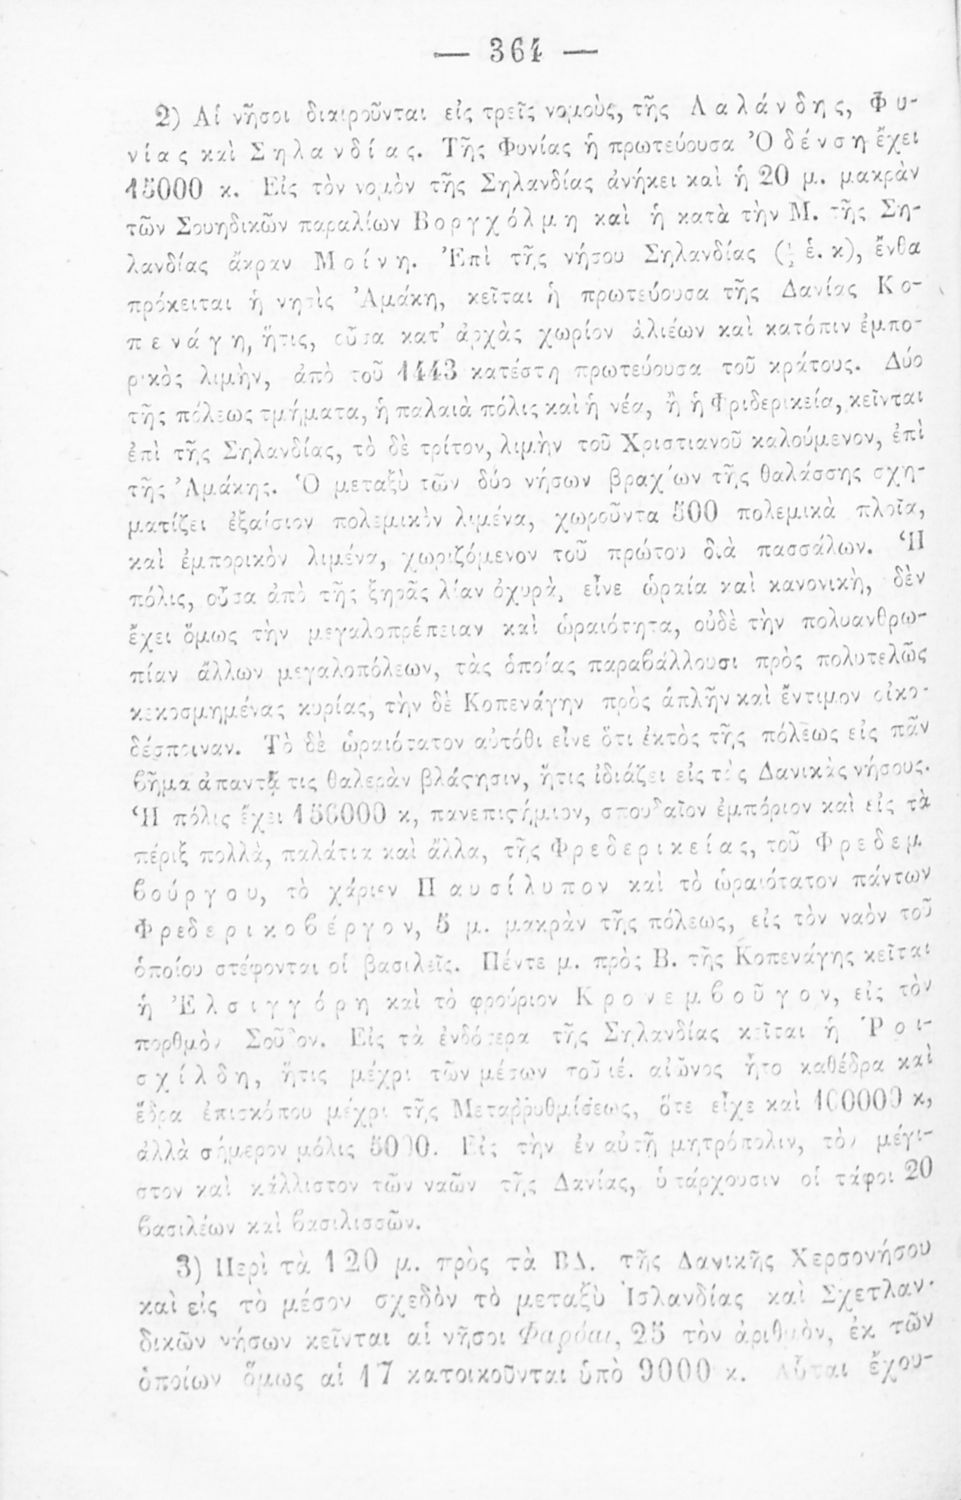 — 364 —
2) Αἱ νῆσοι διαιροῦνται εἰς τρεῖς νομοὺς, τῆς Λαλάνδης, Φυ-
νίας καὶ Σηλανδίας. Τῆς Φυνίας ἡ πρωτεύουσα Ὀδένση ἔχει
15000 κ. Εἰς τὸν νομὸν τῆς Σηλανδίας ἀνήκει καὶ ἡ 20 μ. μακρὰν
τῶν Σουηδικῶν παραλίων Βοργχόλμη καὶ ἡ κατὰ τὴν Μ. τῆς Ση-
λανδίας ἄκραν Μοίνη. Ἐπὶ τῆς νήσου Σηλανδίας ( ἑ. κ), ἔνθα
πρόκειται ἡ νησὶς Ἀμάκη, κεῖται ἡ πρωτεύουσα τῆς Δανίας Κο-
πενάγη, ἥτις, οὖσα κατ' ἀρχὰς χωρίον ἁλιέων καὶ κατόπιν ἐμπο-
ρικὸς λιμὴν, ἀπὸ τοῦ 1443 κατέστη πρωτεύουσα τοῦ κράτους. Δύο
τῆς πόλεως τμήματα, ἡ παλαιὰ πόλις καὶ ἡ νέα, ἢ ἡ Φριδερικεία, κεῖνται
ἐπὶ τῆς Σηλανδίας, τὸ δὲ τρίτον, λιμὴν τοῦ Χριστιανοῦ καλούμενον, ἐπὶ
τῆς Ἀμάκης. Ὁ μεταξὺ τῶν δύο νήσων βραχίων τῆς θαλάσσης σχη-
ματίζει ἐξαίσιον πολεμικὸν λιμένα, χωροῦντα 500 πολεμικὰ πλοῖα,
καὶ ἐμπορικὸν λιμένα, χωριζόμενον τοῦ πρώτου διὰ πασσάλων. Ἡ
πόλις, οὖσα ἀπὸ τῆς ξηρᾶς λίαν ὀχυρὰ, εἶνε ὡραία καὶ κανονικὴ, δὲν
ἔχει ὅμως τὴν μεγαλοπρέπειαν καὶ ὡραιότητα, οὐδὲ τὴν πολυανθρω-
πίαν ἄλλων μεγαλοπόλεων, τὰς ὁποίας παραβάλλουσι πρὸς πολυτελῶς
κεκοσμημένας κυρίας, τὴν δὲ Κοπενάγην πρὸς ἁπλῆν καὶ ἔντιμον οἰκο-
δέσποιναν. Τὸ δὲ ὡραιότατον αὐτόθι εἶνε ὅτι ἐκτὸς τῆς πόλεως εἰς πᾶν
βῆμα ἀπαντᾷ τις θαλερὰν βλάστησιν, ἥτις ἰδιάζει εἰς τὰς Δανικὰς νήσους.
Ἡ πόλις ἔχει κ, πανεπιστήμιον, σπουδαῖον ἐμπόριον καὶ εἰς τὰ
πέριξ πολλὰ, παλάτια καὶ ἄλλα, τῆς Φρεδερικείας, τοῦ Φρεδεμ
βούργου, τὸ χάριεν Παυσίλυπον καὶ τὸ ὡραιότατον πάντων
Φρεδερικοβέργον, 5 μ. μακρὰν τῆς πόλεως, εἰς τὸν ναὸν τοῦ
ὁποίου στέφονται οἱ βασιλεῖς. Πέντε μ. πρὸς Β. τῆς Κοπενάγης κεῖται
ἡ Ἐλσιγγόρη καὶ τὸ φρούριον Κρονεμβοῦγον, εἰς τὸν
πορθμὸν Σοῦνδον. Εἰς τὰ ἐνδότερα τῆς Σηλανδίας κεῖται ἡ Ῥοι-
σχίλδη, ἥτις μέχρι τῶν μέσων τοῦ ιέ. αἰῶνος ἦτο καθέδρα καὶ
ἕδρα ἐπισκόπου μέχρι τῆς Μεταῤῥυθμίσεως, ὅτε εἶχε καὶ 100000 κ,
ἀλλὰ σήμερον μόλις 5000. Εἰς τὴν ἐν αὐτῇ μητρόπολιν, τὸν μέγι-
στον καὶ κάλλιστον τῶν ναῶν τῆς Δανίας, ὑπάρχουσιν οἱ τάφοι 20
βασιλέων καὶ βασιλισσῶν.
3) Περὶ τὰ 120 μ. πρὸς τὰ ΒΔ. τῆς Δανικῆς Χερσονήσου
καὶ εἰς τὸ μέσον σχεδὸν τὸ μεταξὺ Ἰσλανδίας καὶ Σχετλαν-
δικῶν νήσων κεῖνται αἱ νῆσοι Φαρόαι, 25 τὸν ἀριθμὸν, ἐκ τῶν
ὁποίων ὅμως αἱ 17 κατοικοῦνται ὑπὸ 9000 κ. Αὗται ἔχου-